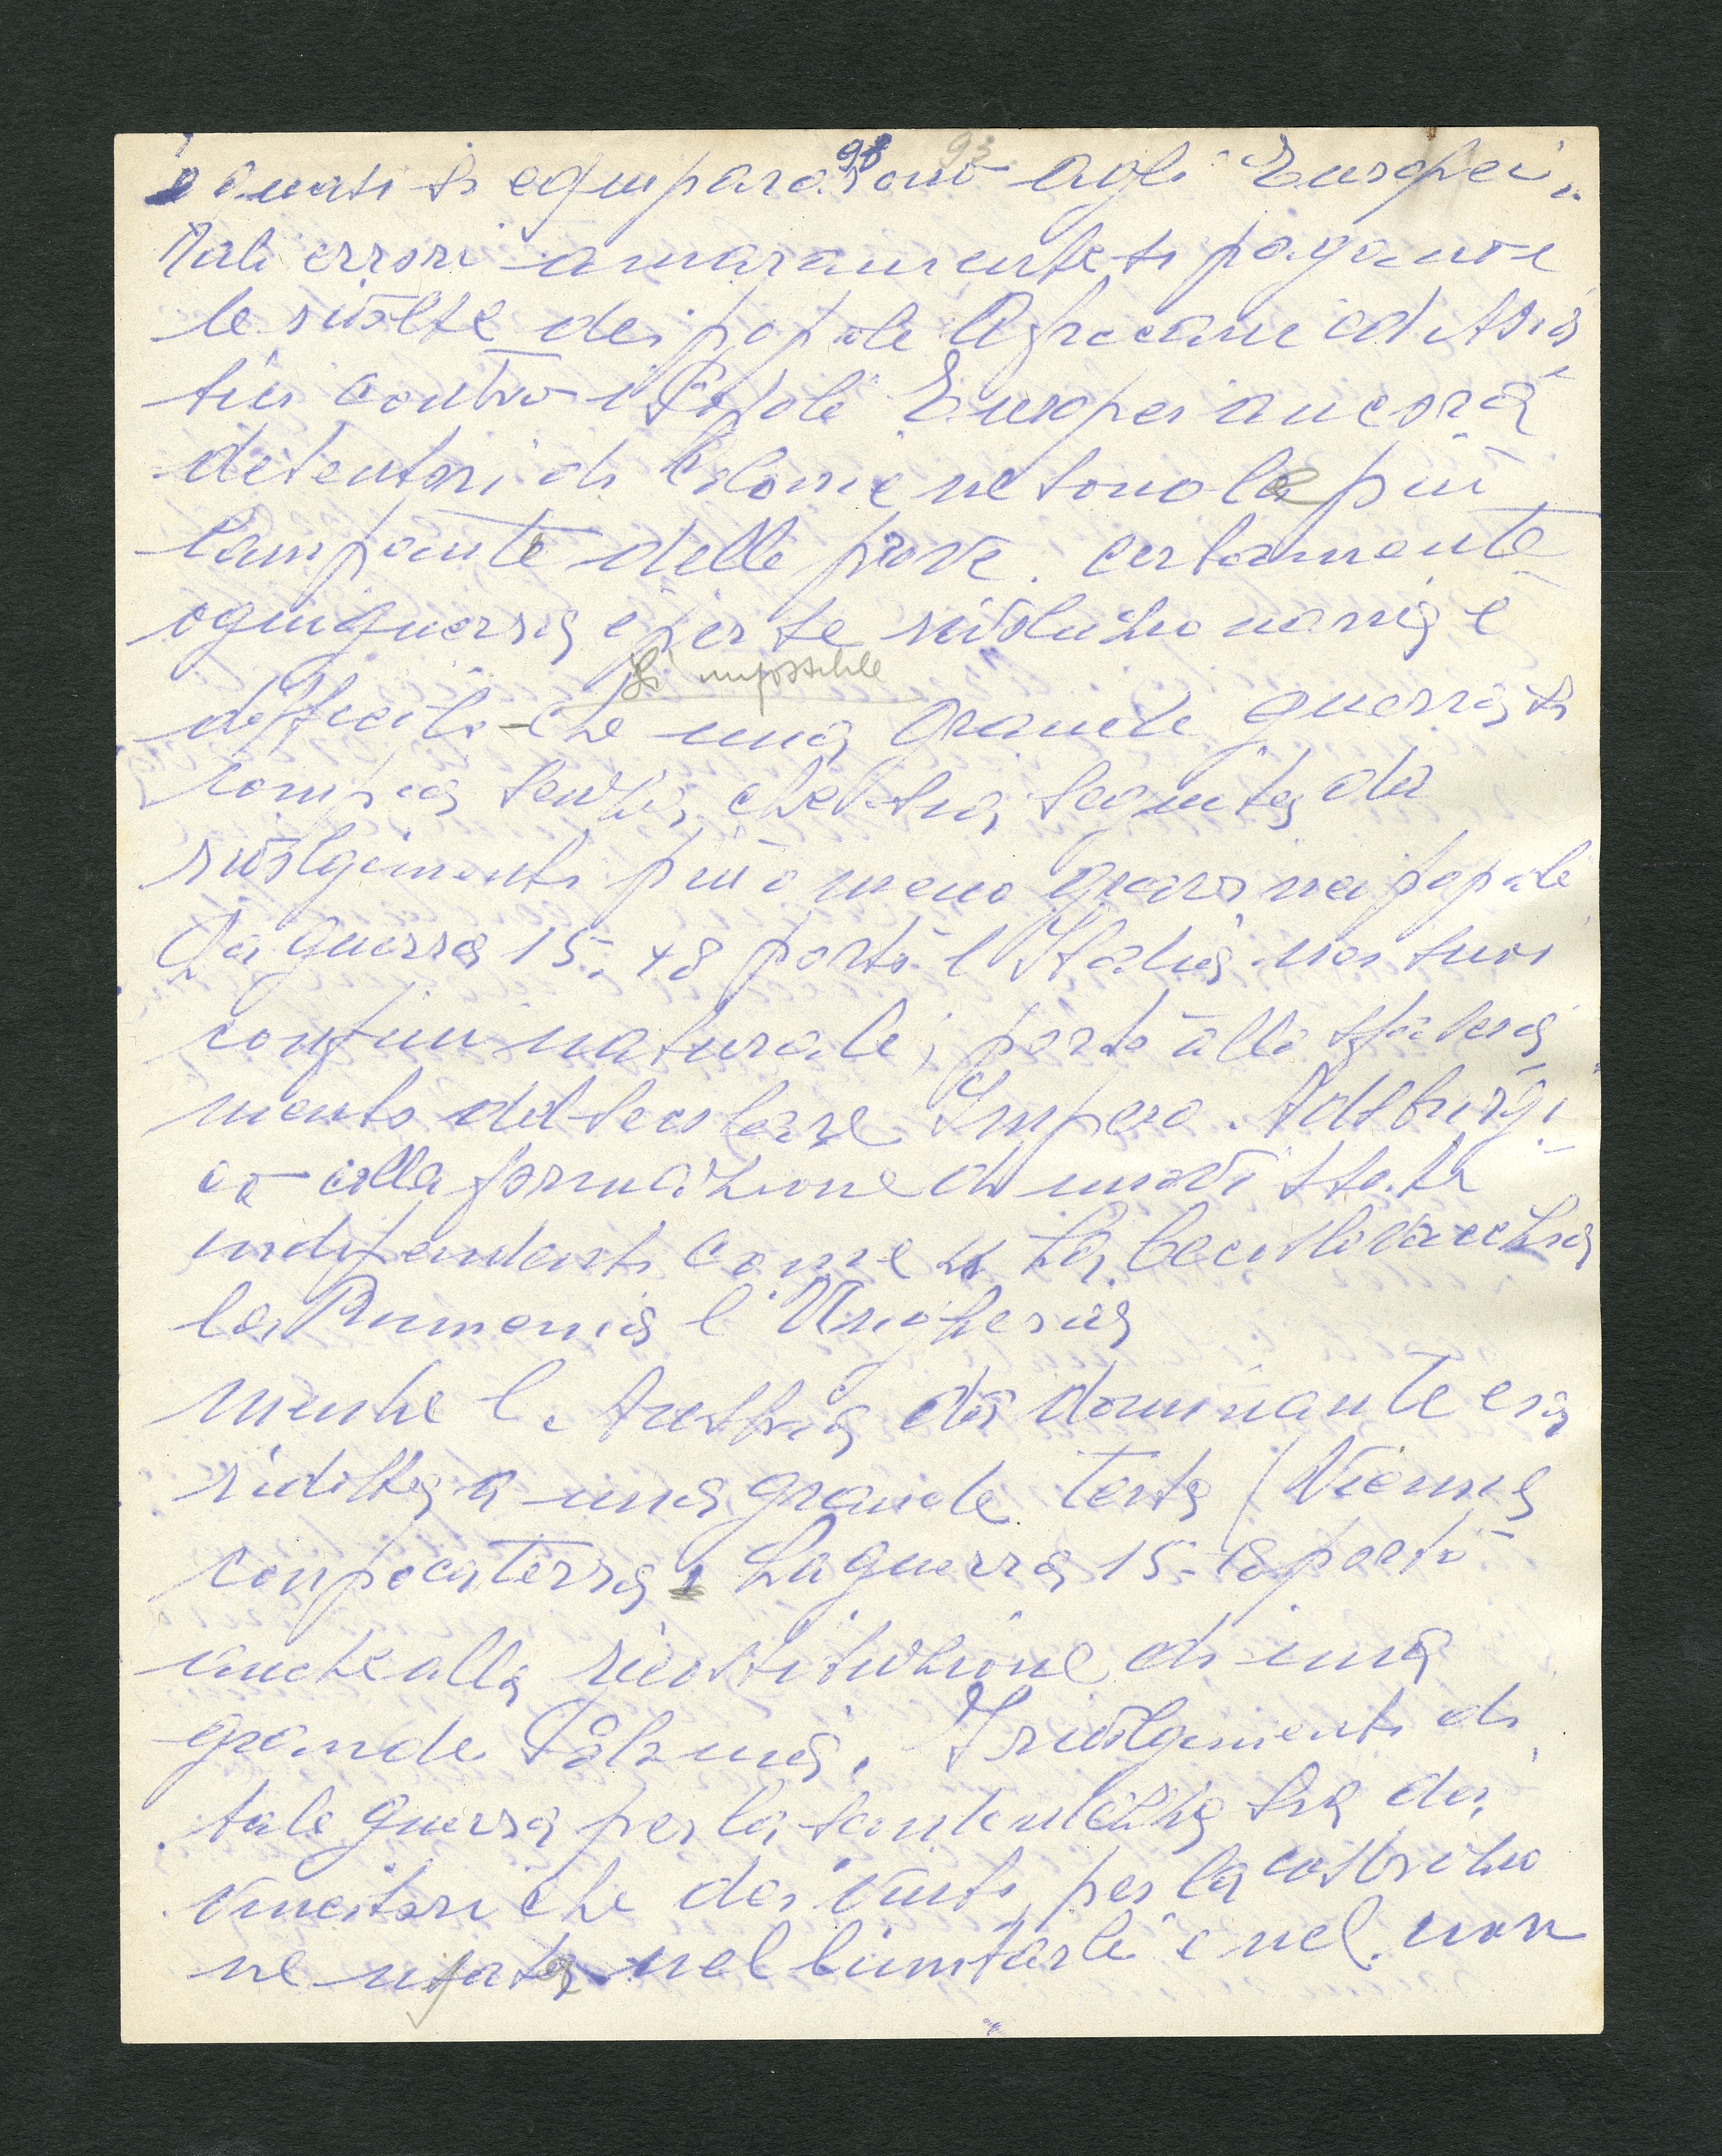 98 93
e quasi si equipararono agli Europei.
Tali errori amaramente si pagano e
le rivolte dei popoli Africani ed Asia
tici contro i Popoli Europei ancora
detentori di Colonie ne sono le più
lampante delle prove. certamente
ogni guerra è per se rivoluzionaria è
impossibile
difficile che una grande guerra si
compia senza che sia seguita da
rivolgimenti più o meno gravi nei popoli
La guerra 15-18 portò l'Italia nei suoi
confini naturali; portò allo sfalda
mento del secolare Impero Adsburgi
co colla formazione di nuovi stati
indipendenti come la Cecoslovacchia
la Rumenia l'Ungheria
mentre l'Austria da dominante era
ridotta a una grande testa (Vienna
con poca terra. La guerra 15-18 portò
anche alla ricostituzione di una
grande Polonia. I rivolgimenti di
tale guerra per la santa
vincitori che dei vinti, per la costrizio
ne usata nel limitarli e nel non